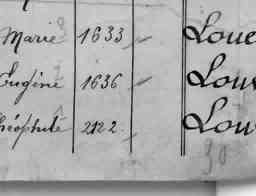 Marie 1633 Loue
Eugène 1636 Lou
Théophile 2122 Lou
30